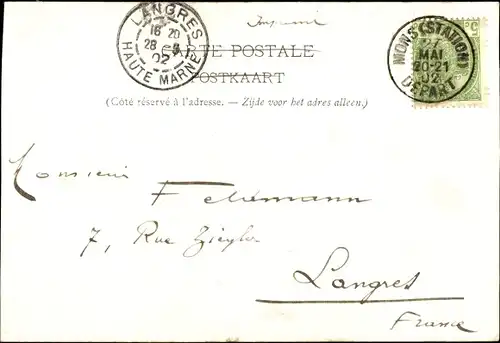 Imprimé
LANGRES
16 20
28 -5
02
HAUTE MARNE
MONS (STATION)
MAI
20-21
02
DÉPART
CARTE POSTALE
POSTKAART
(Côté réservé à l'adresse. — Zijde voor het adres alleen.)
Monsieur
7, Rue Ziegler
Langres
France